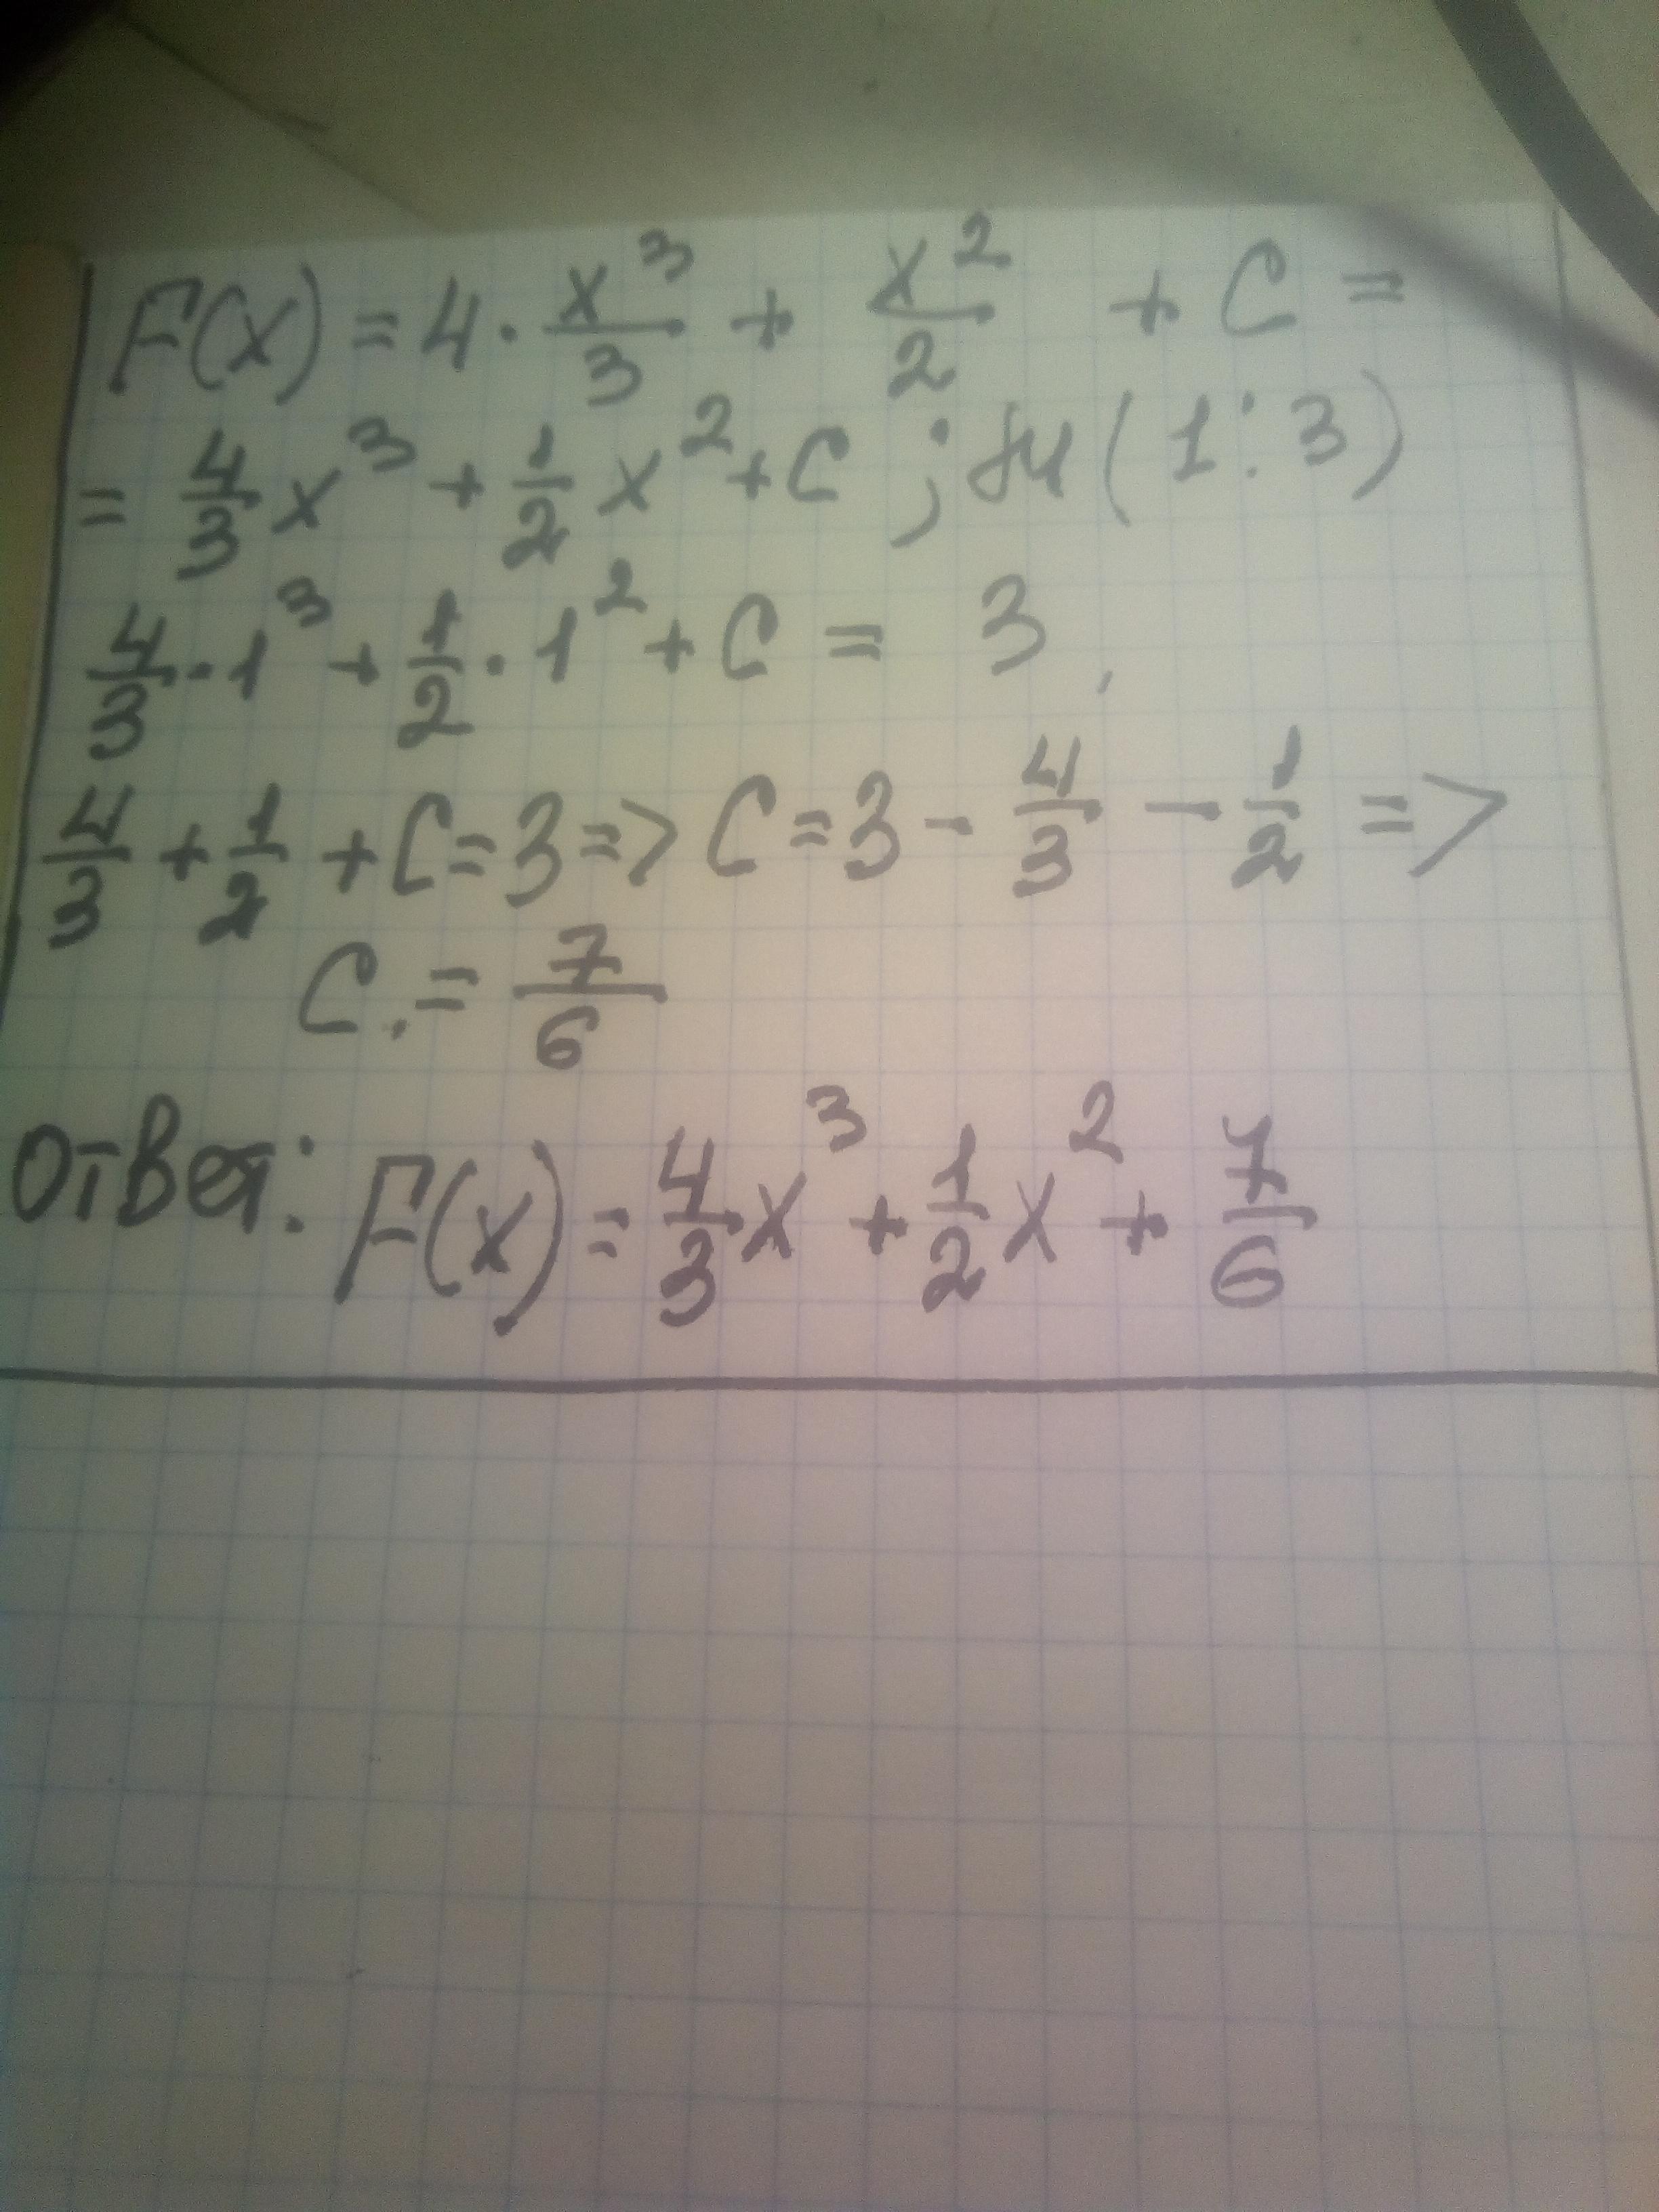 F(x) = 4 · x³/3 + x²/2 + C =
= 4/3 x³ + 1/2 x² + C ; М (1 : 3)
4/3 · 1³ + 1/2 · 1² + C = 3,
4/3 + 1/2 + C = 3 => C = 3 - 4/3 - 1/2 =>
C = 7/6
Ответ: F(x) = 4/3 x³ + 1/2 x² + 7/6